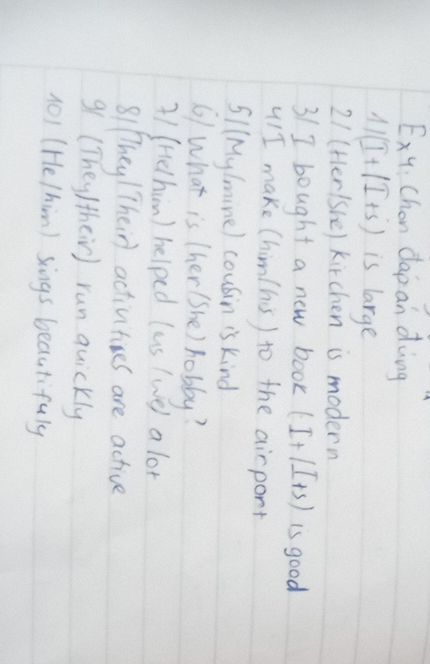 Ex4: Chọn đáp án đúng
1/ (It/Its) is large
2/ (Her/She) kitchen is modern
3/ I bought a new book (It/Its) is good
4/ I make (him/his) to the airport
5/ (My/mine) cousin is kind
6/ What is (her/she) hobby?
7/ (He/him) helped (us/we) a lot
8/ (They/Their) activities are active
9/ (They/their) run quickly
10/ (He/him) sings beautifuly